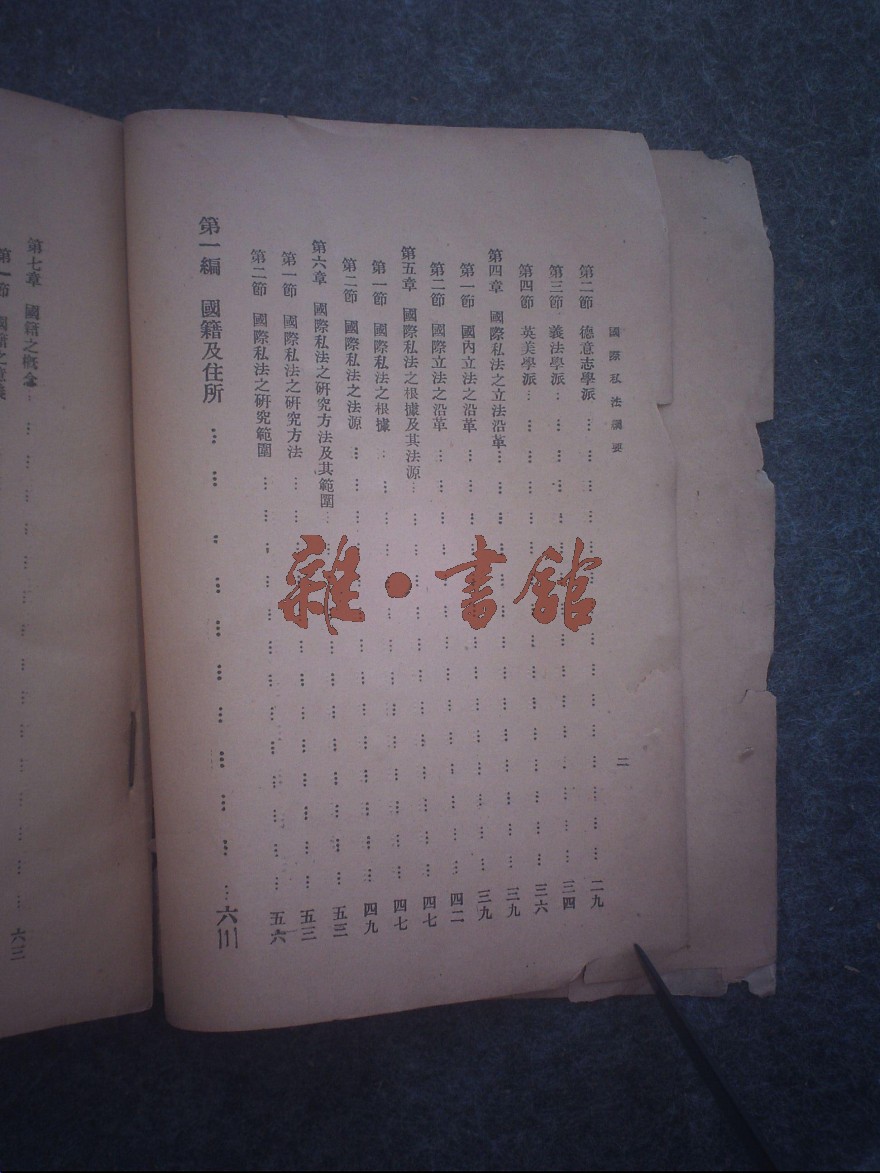 國際私法綱要
二
第二節 德意志學派 二九
第三節 義法學派 三四
第四節 英美學派 三六
第四章 國際私法之立法沿革 三九
第一節 國內立法之沿革 三九
第二節 國際立法之沿革 四二
第五章 國際私法之根據及其法源 四七
第一節 國際私法之根據 四七
第二節 國際私法之法源 四九
第六章 國際私法之研究方法及其範圍 五三
第一節 國際私法之研究方法 五三
第二節 國際私法之研究範圍 五六
第一編 國籍及住所 六三
第七章 國籍之概念 六三
第一節 國籍之意義
雜·書館